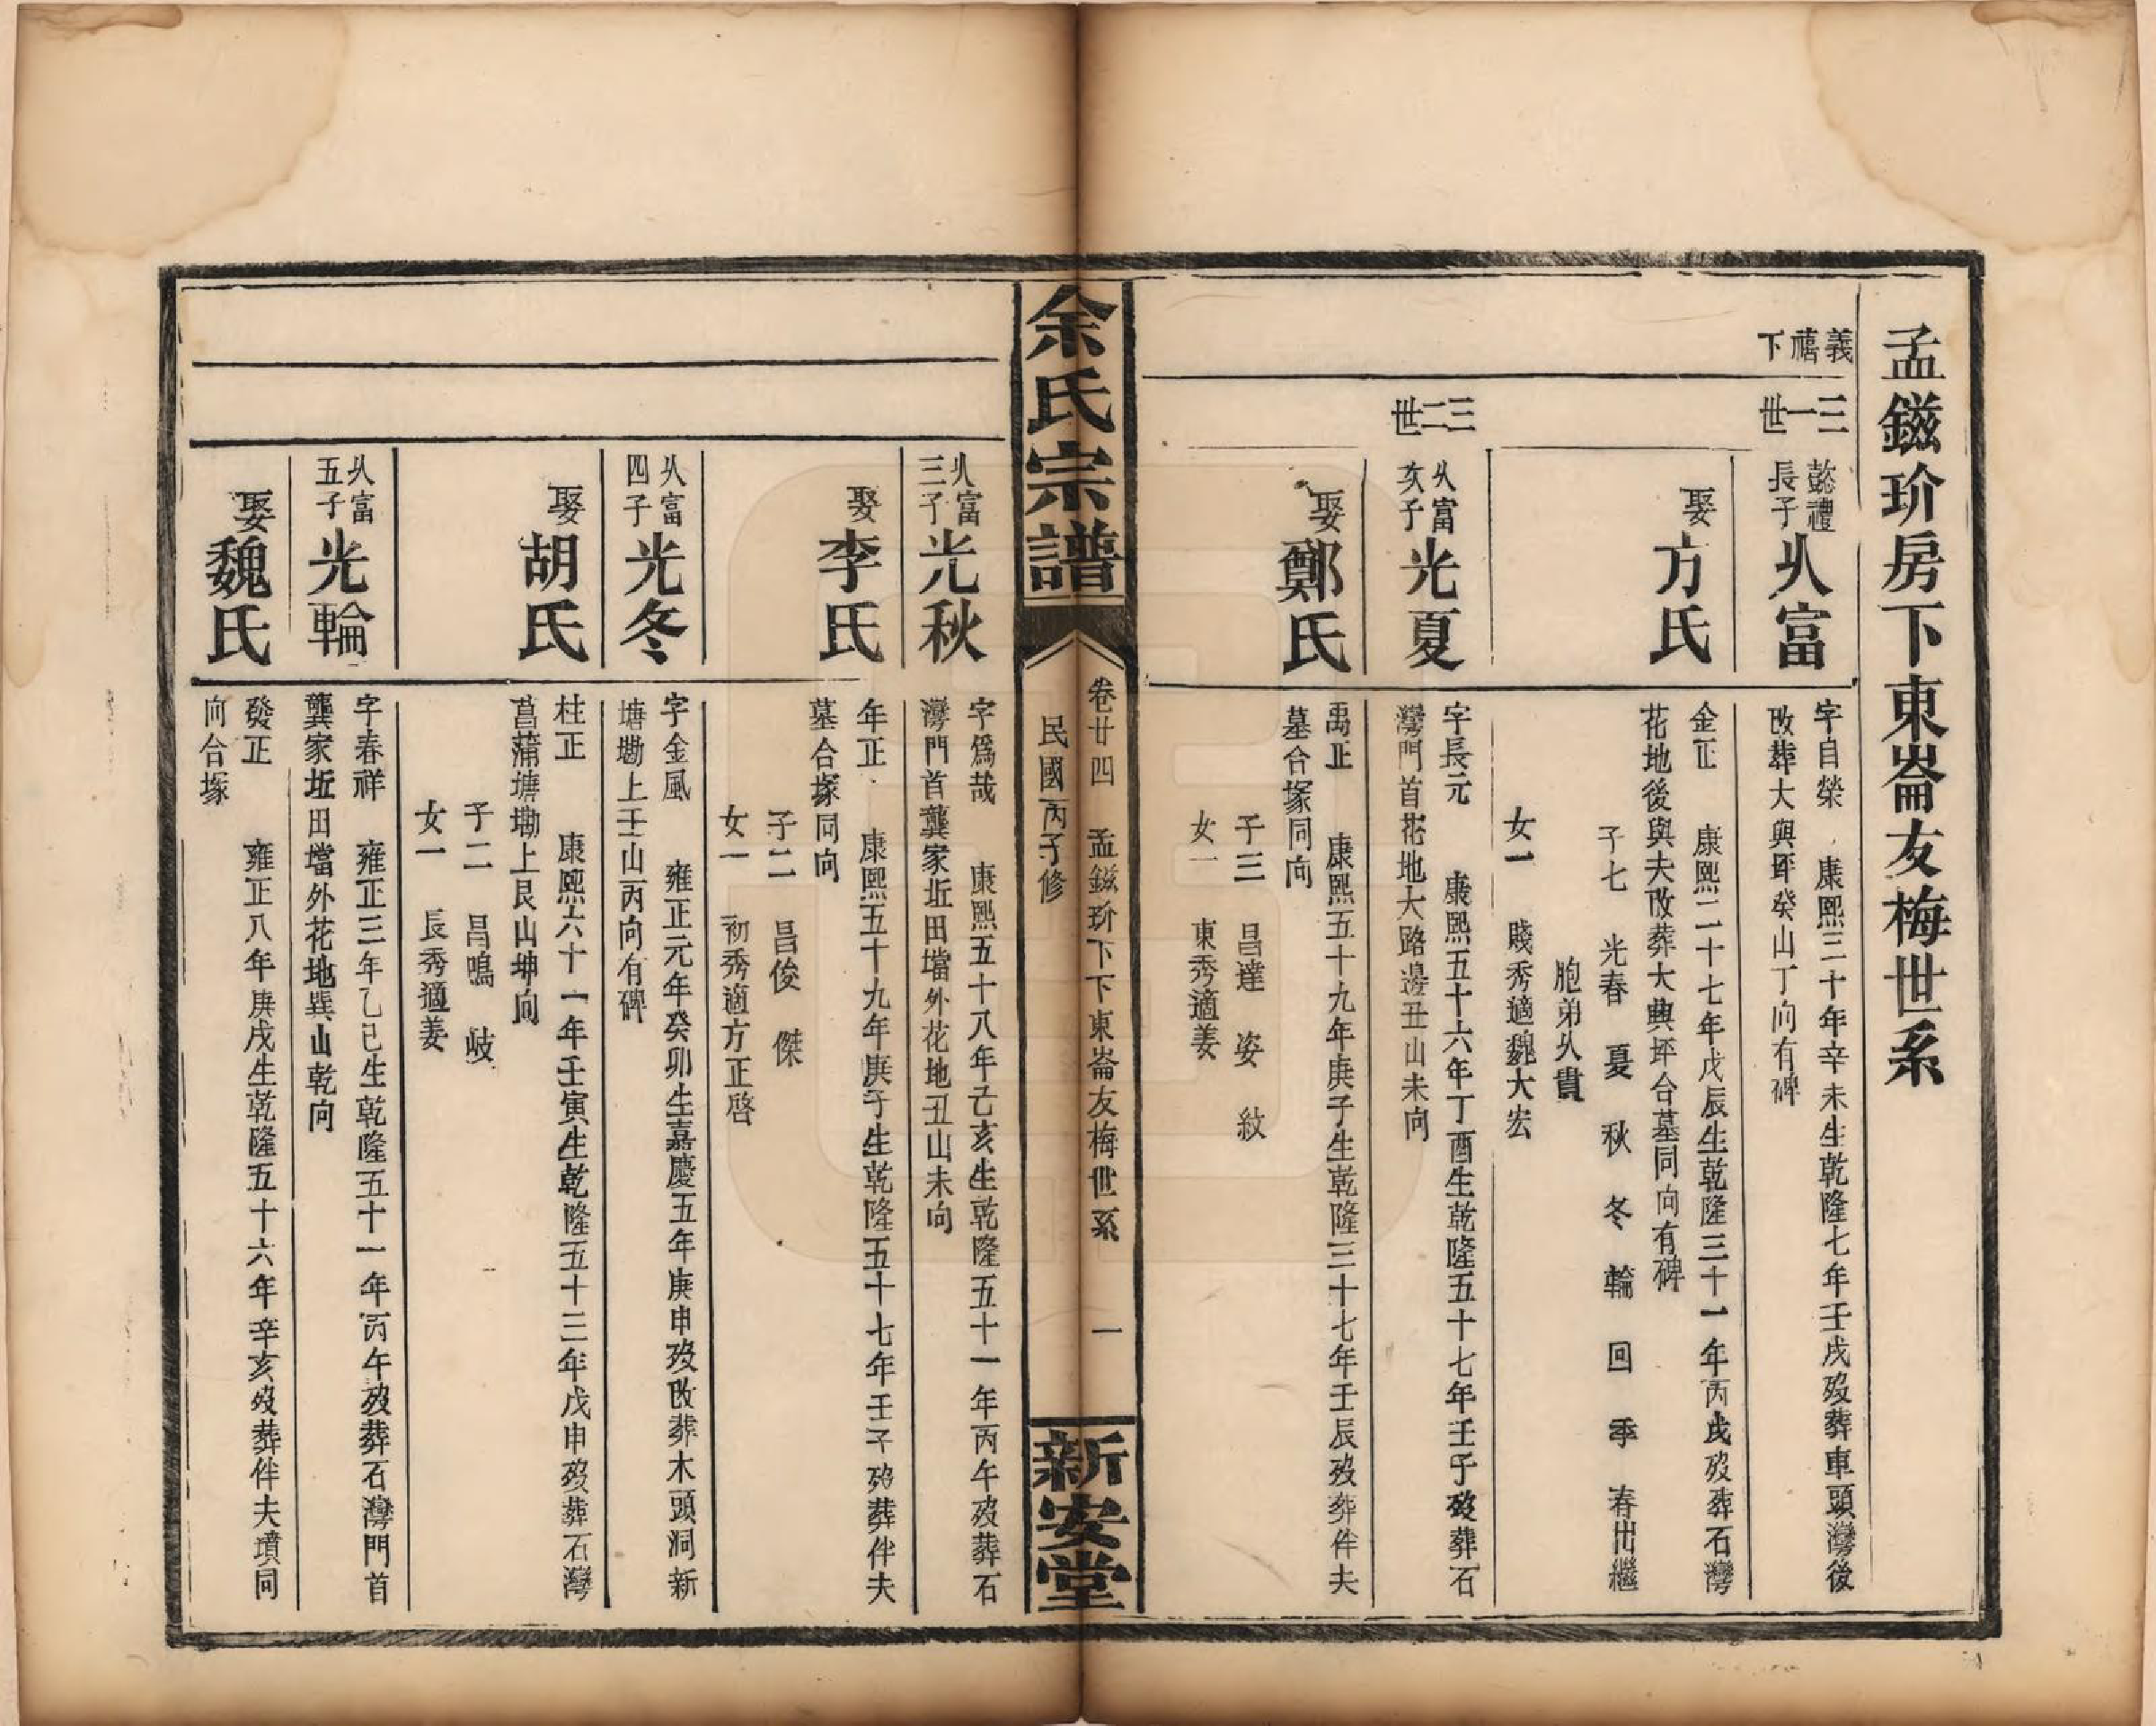 孟鎡玠房下東崙友梅世系
義禧下
三一世
懿禮長子
乆富
字自榮　康熙三十年辛未生乾隆七年壬戌歿葬車頭灣後
改葬大興坪癸山丁向有碑
娶方氏
金正　康熙二十七年戊辰生乾隆三十一年丙戌歿葬石灣
花地後與夫改葬大興坪合墓同向有碑
子七　光春　夏　秋　冬　輪　回　季　春出繼
胞弟乆貴
女一　賤秀適魏大宏
三二世
乆富次子
光夏
字長元　康熙五十六年丁酉生乾隆五十七年壬子歿葬石
灣門首花地大路邊丑山未向
娶鄭氏
禹正　康熙五十九年庚子生乾隆三十七年壬辰歿葬伴夫
墓合塚同向
子三　昌達　姿　紋
女一　東秀適姜
余氏宗譜
卷廿四　孟鎡玠下下東崙友梅世系　一
民國丙子修
新安堂
乆富三子
光秋
字爲哉　康熙五十八年己亥生乾隆五十一年丙午歿葬石
灣門首龔家坵田壋外花地丑山未向
娶李氏
年正　康熙五十九年庚子生乾隆五十七年壬子歿葬伴夫
墓合塚同向
子二　昌俊　傑
女一　初秀適方正啓
乆富四子
光冬
字金風　雍正元年癸卯生嘉慶五年庚申歿改葬木頭洞新
塘墈上壬山丙向有碑
娶胡氏
柱正　康熙六十一年壬寅生乾隆五十三年戊申歿葬石灣
菖蒲塘墈上艮山坤向
子二　昌鳴　岐
女一　長秀適姜
乆富五子
光輪
字春祥　雍正三年乙巳生乾隆五十一年丙午歿葬石灣門首
龔家坵田壋外花地巽山乾向
娶魏氏
發正　雍正八年庚戌生乾隆五十六年辛亥歿葬伴夫墳同
向合塚